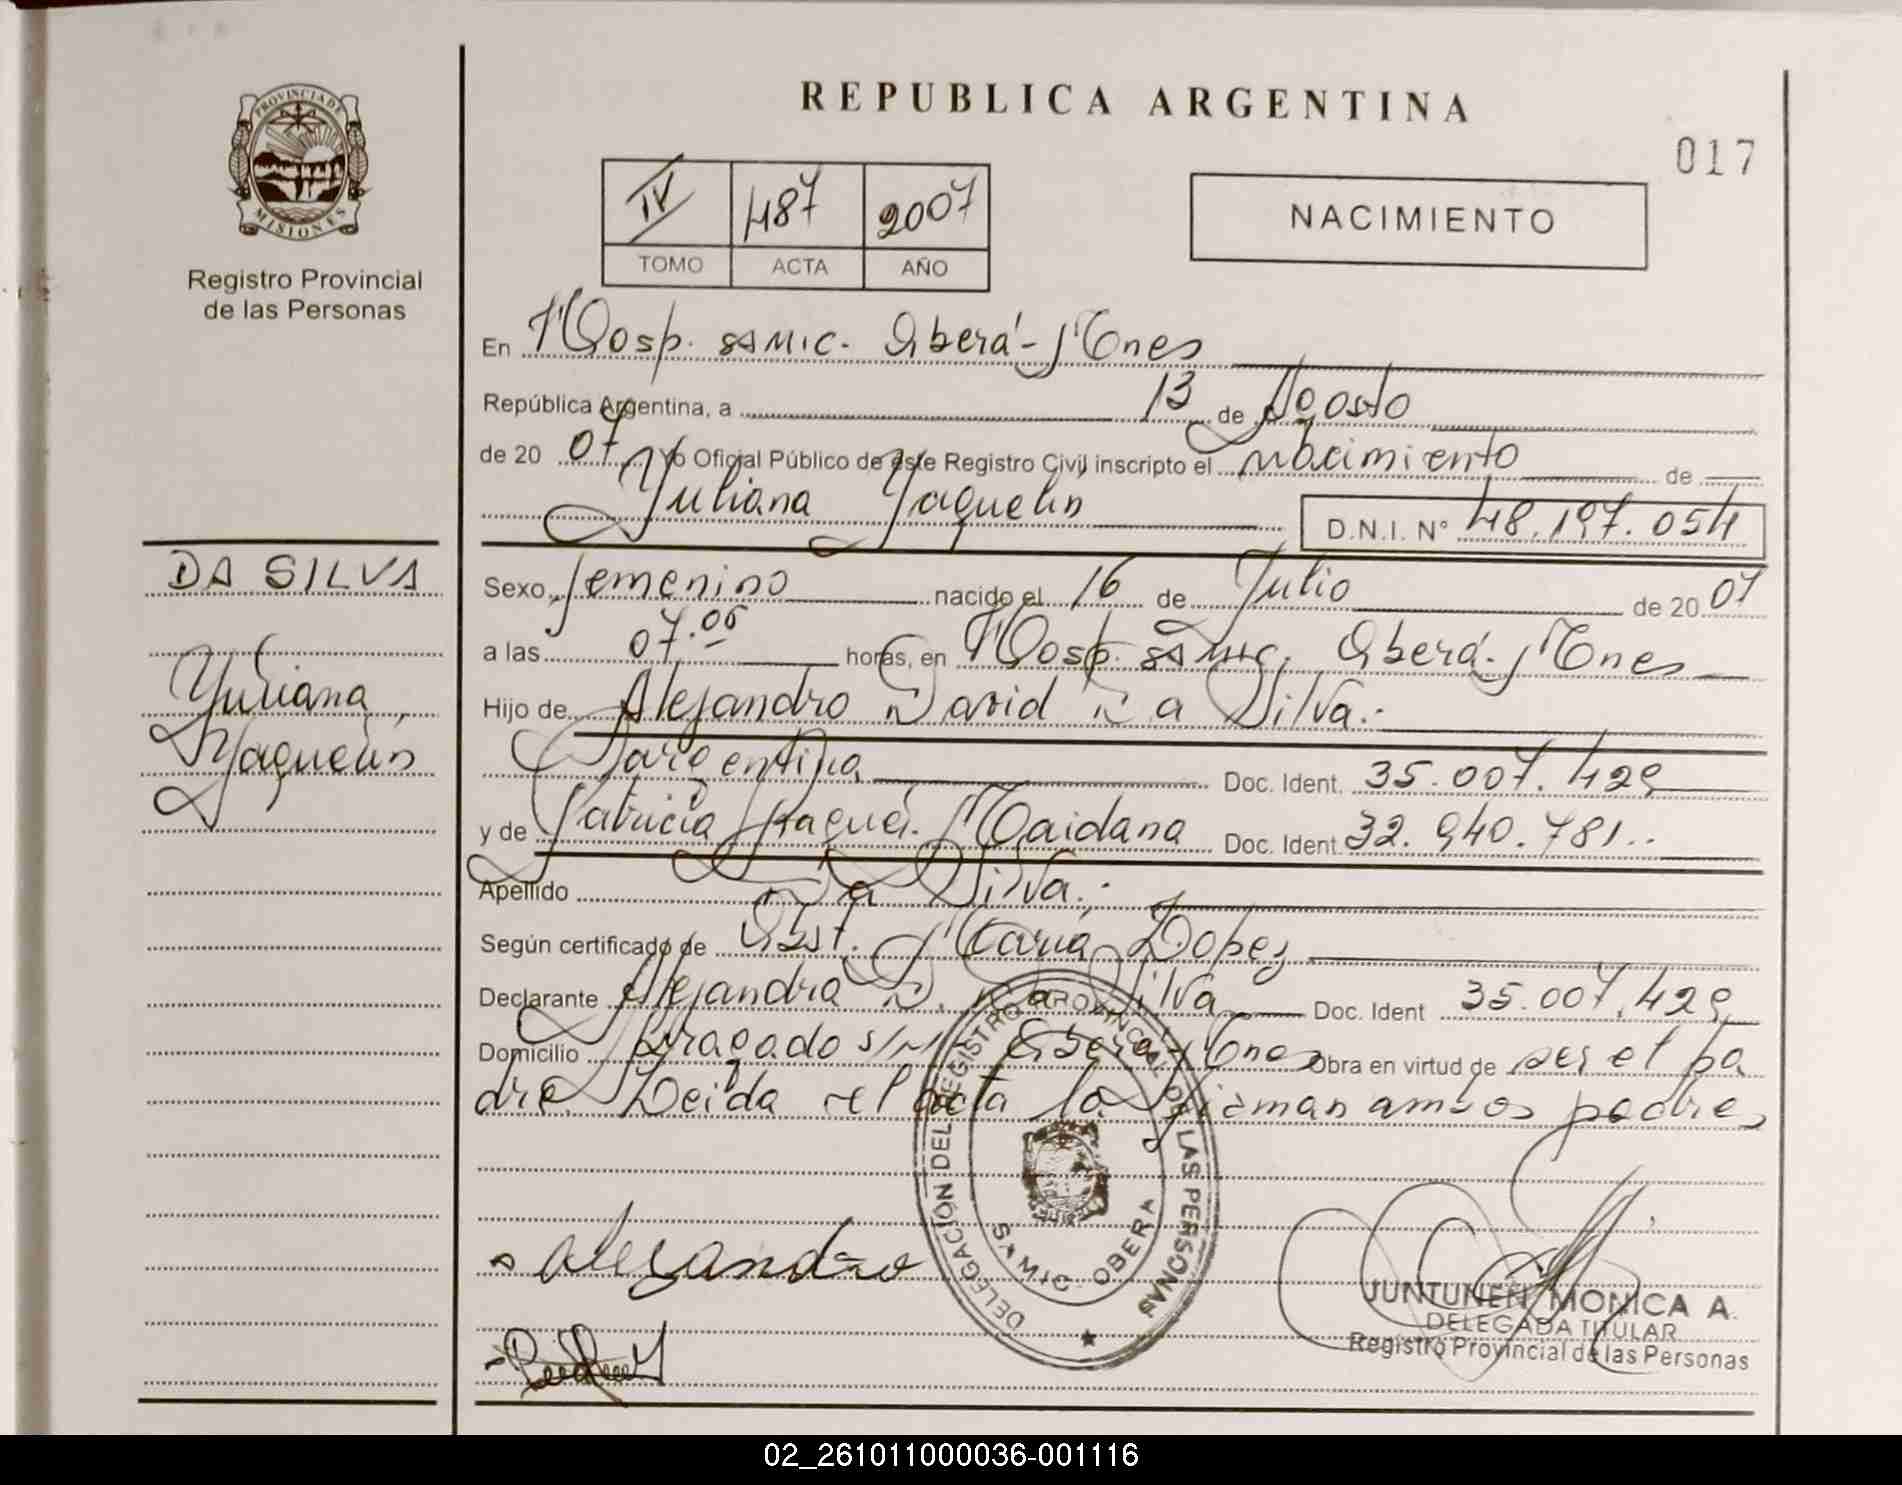 REPUBLICA ARGENTINA
017
PROVINCIA DE
MISIONES
Registro Provincial
de las Personas
IV 487 2007
TOMO ACTA AÑO
NACIMIENTO
En Hosp. SAMIC. Oberá - Mnes
República Argentina, a 13 de Agosto
de 20 07 Yo Oficial Público de este Registro Civil inscripto el nacimiento de
Yuliana Yaquelin D.N.I. N° 48.197.054
DA SILVA
Yuliana
Yaquelin
Sexo femenino nacido el 16 de Julio de 20 07
a las 07.06 horas, en Hosp. SAMIC. Oberá - Mnes
Hijo de Alejandro David Da Silva.-
argentina Doc. Ident. 35.007.429
y de Patricia Raquel Maidana Doc. Ident. 32.940.781..
Apellido Da Silva.-
Según certificado de Obst. Maria Lopez
Declarante Alejandro D. Da Silva Doc. Ident 35.007.429
Domicilio Bragado S/N° Oberá - Mnes Obra en virtud de ser el pa
dre. Leida el acta la firman ambos padres
DELEGACIÓN DEL REGISTRO PROVINCIAL DE LAS PERSONAS
SAMIC - OBERA
Alejandro
JUNTUNEN MONICA A.
DELEGADA TITULAR
Registro Provincial de las Personas
02_261011000036-001116